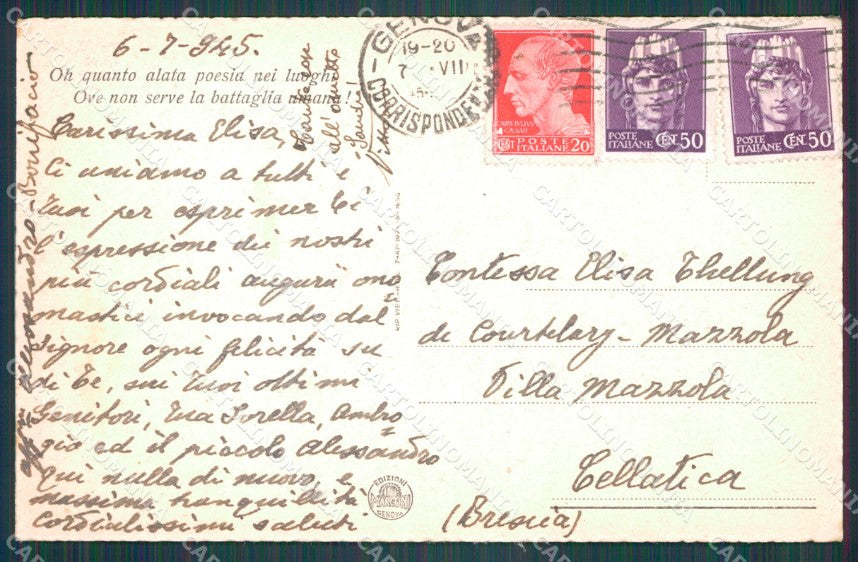 6-7-945.
Oh quanto alata poesia nei luoghi
Ove non serve la battaglia umana!
Carissima Elisa,
Ci uniamo a tutti i
Tuoi per esprimer Ti
l'espressione dei nostri
più cordiali auguri ono
mastici invocando dal
Signore ogni felicità su
di Te, sui Tuoi ottimi
Genitori, Tua Sorella, Ambro
gio ed il piccolo Alessandro
qui nulla di nuovo, e
massima tranquillità
Cordialissimi saluti
Bonifacio
all'
GENOVA
19-20
7 VII
45
CORRISPONDENZE
CAIUS IVLIVS
CAESAR
CENT POSTE
ITALIANE 20
POSTE
ITALIANE CEN. 50
POSTE
ITALIANE CEN. 50
Contessa Elisa Thellung
de Courtelary - Mazzola
Villa Mazzola
Cellatica
(Brescia)
EDIZIONI
MARCONI
GENOVA
CARTOLINOMANIA